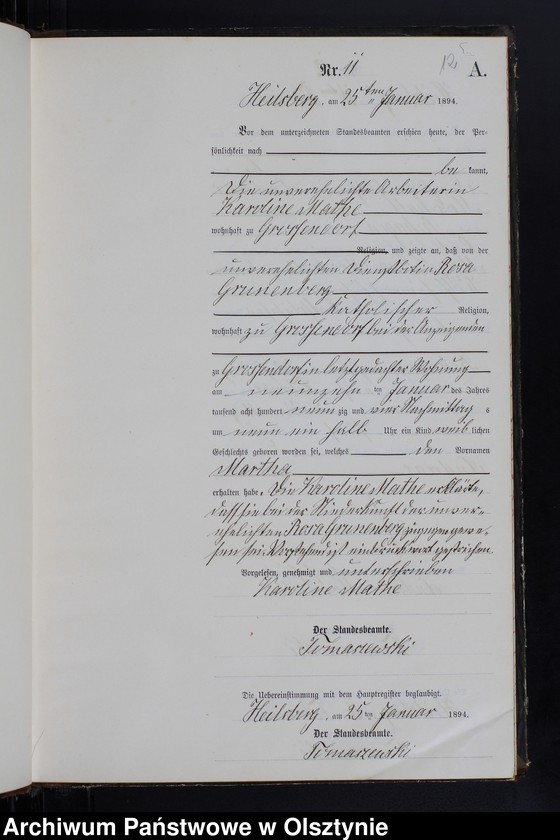 Nr. 11
A.
Heilsberg, am 25ten Januar 1894.
Vor dem unterzeichneten Standesbeamten erschien heute, der Per-
sönlichkeit nach
be kannt,
die unverehelichte Arbeiterin
Karoline Mathe
wohnhaft zu Grossendorf
Religion, und zeigte an, daß von der
unverehelichten Dienstbotin Rosa
Grunenberg
katholischer Religion,
wohnhaft zu Grossendorf bei der Anzeigenden
zu Grossendorf in letztgedachter Wohnung
am neunzehn ten Januar des Jahres
tausend acht hundert neun zig und vier Nachmittag s
um neun ein halb Uhr ein Kind weib lichen
Geschlechts geboren worden sei, welches den Vornamen
Martha
erhalten habe. Die Karoline Mathe erklärte,
daß sie bei der Niederkunft der unver-
ehelichten Rosa Grunenberg zugegen gewe-
sen sei. Vorstehend ist ein Druckwort gestrichen.
Vorgelesen, genehmigt und unterschrieben
Karoline Mathe
Der Standesbeamte.
Tomaszewski
Die Uebereinstimmung mit dem Hauptregister beglaubigt.
Heilsberg, am 25 ten Januar 1894.
Der Standesbeamte.
Tomaszewski
Archiwum Państwowe w Olsztynie